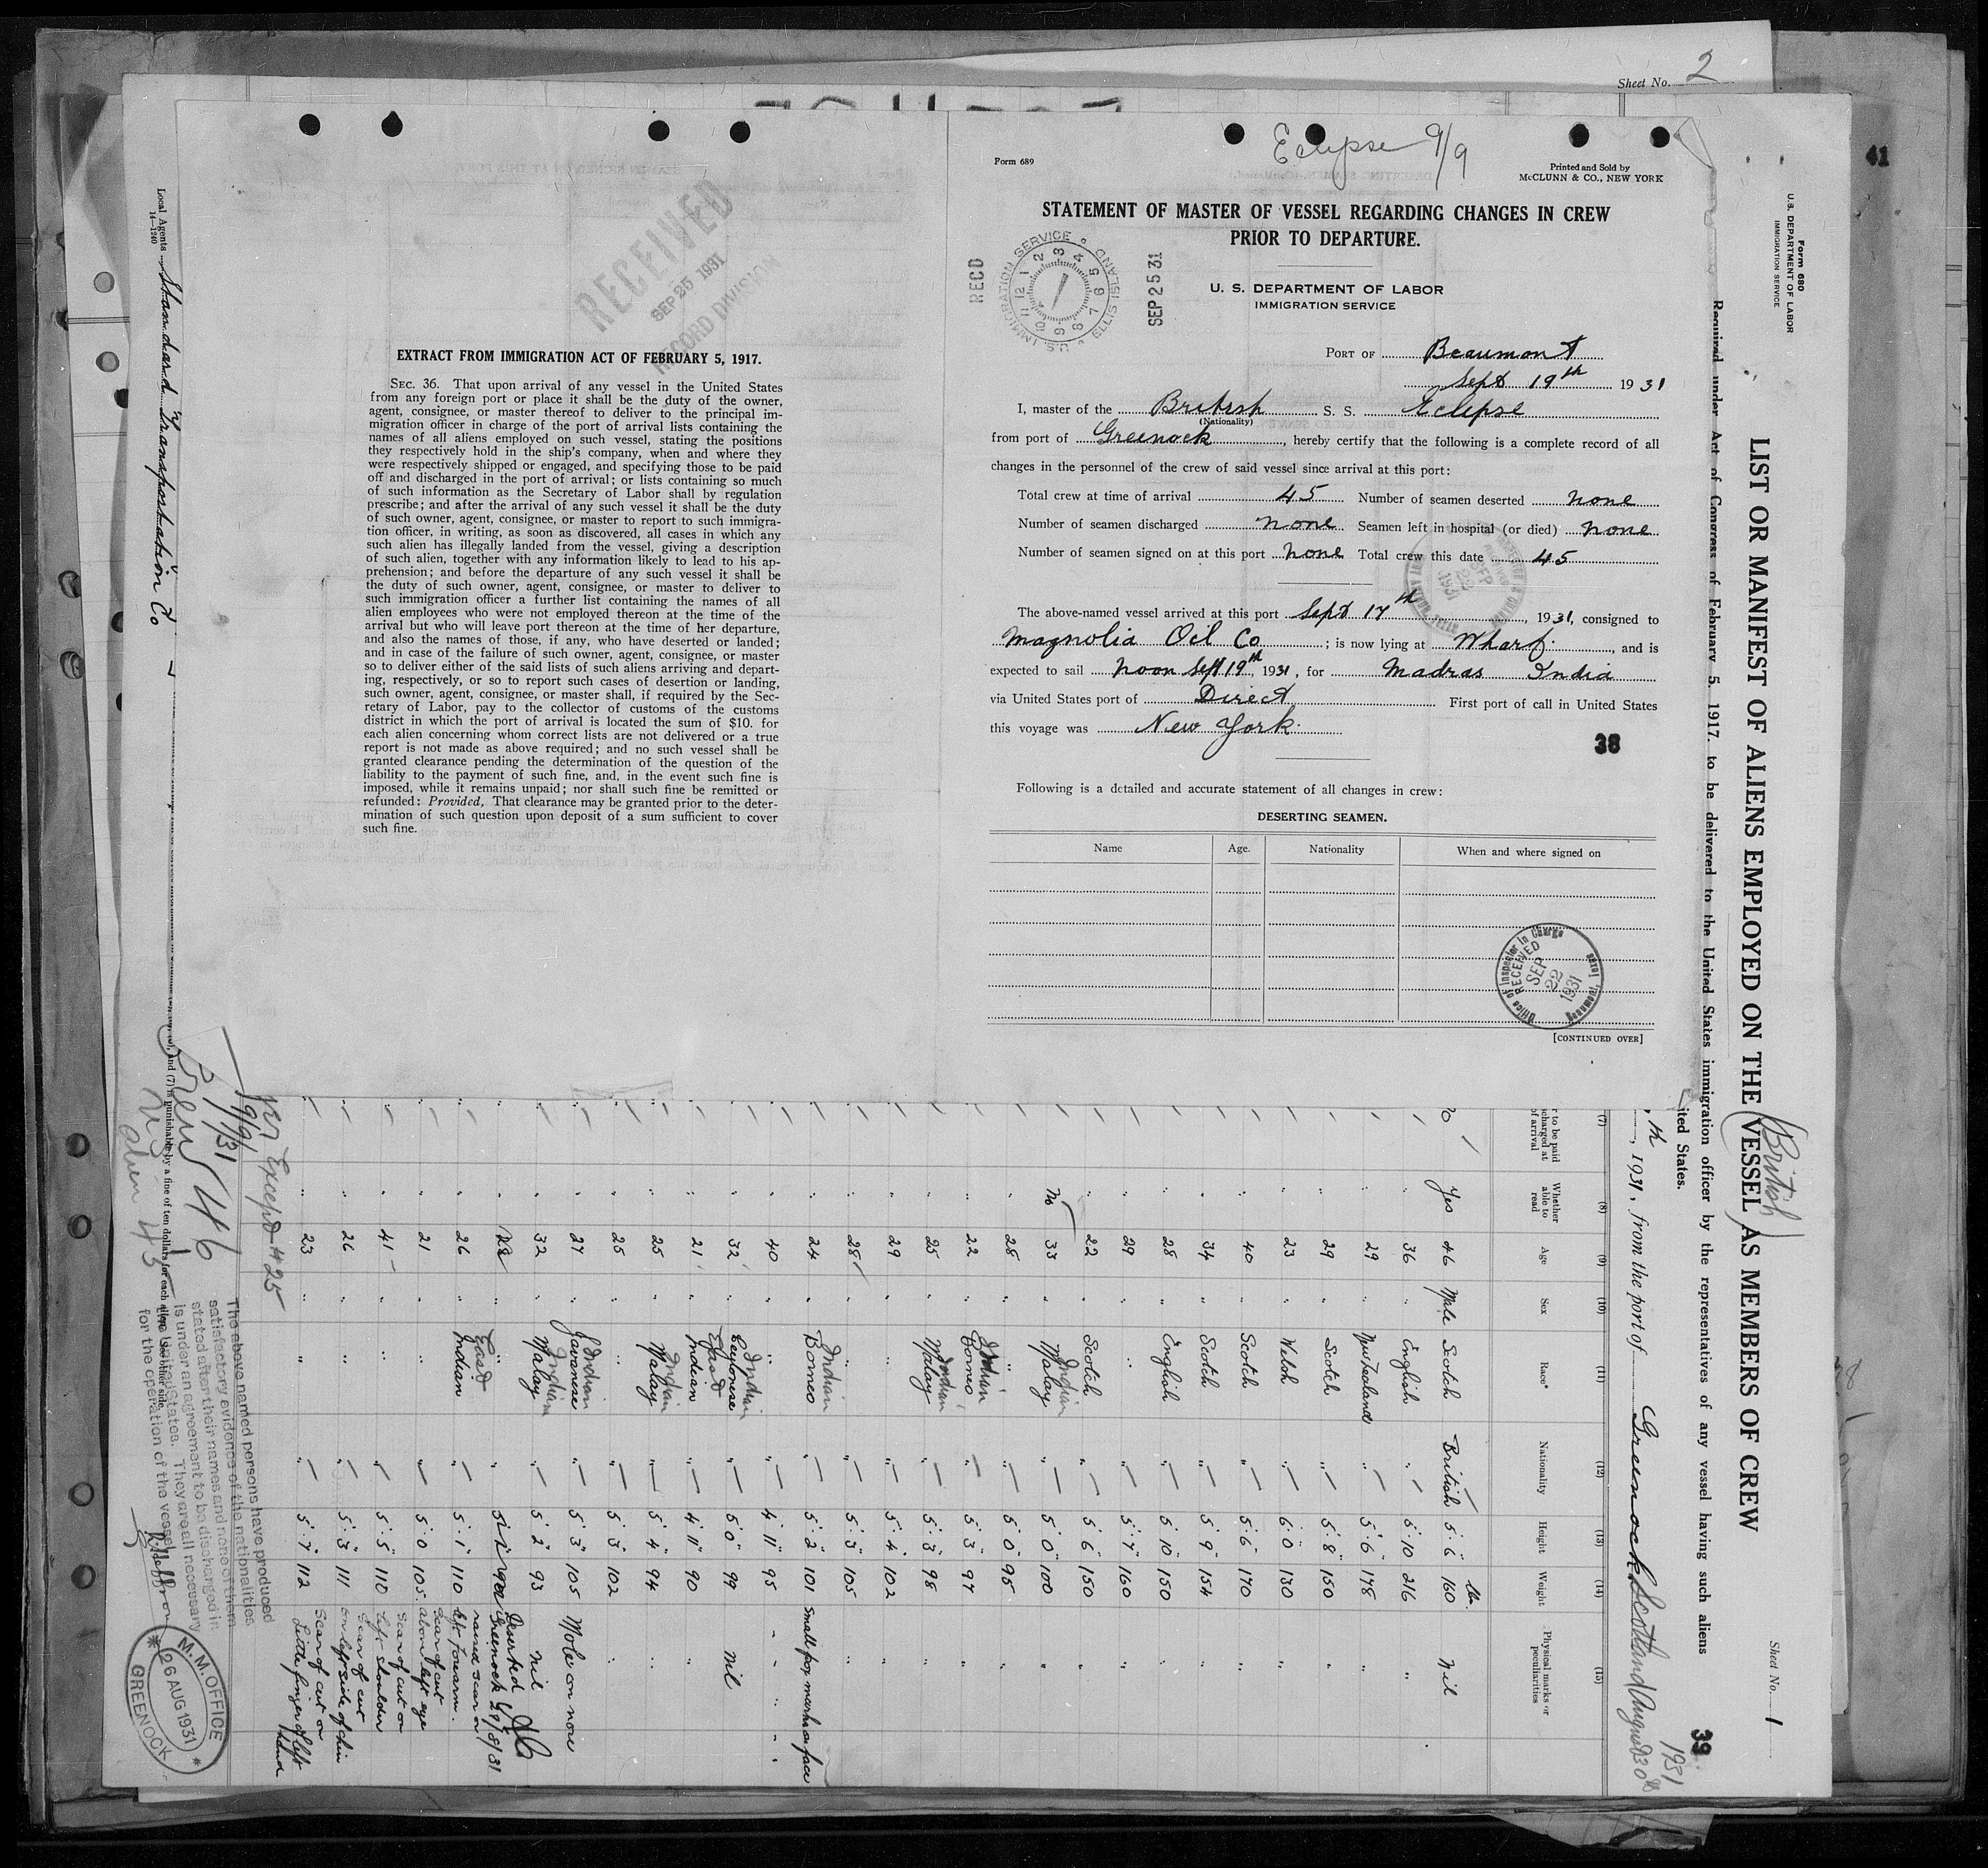 Sheet No. 2
41
Eclipse 9/9
Form 689
Printed and Sold by
McCLUNN & CO., NEW YORK
STATEMENT OF MASTER OF VESSEL REGARDING CHANGES IN CREW
PRIOR TO DEPARTURE.
U. S. DEPARTMENT OF LABOR
IMMIGRATION SERVICE
RECD
U.S. IMMIGRATION SERVICE • ELLIS ISLAND
SEP 25 31
PORT OF Beaumont
Sept 19th 1931
I, master of the British S. S. Eclipse
(Nationality)
from port of Greenock, hereby certify that the following is a complete record of all
changes in the personnel of the crew of said vessel since arrival at this port:
Total crew at time of arrival 45 Number of seamen deserted none
Number of seamen discharged none Seamen left in hospital (or died) none
Number of seamen signed on at this port none Total crew this date 45
The above-named vessel arrived at this port Sept 17th, 1931, consigned to
Magnolia Oil Co; is now lying at Wharf, and is
expected to sail Noon Sept 19th, 1931, for Madras India
via United States port of Direct First port of call in United States
this voyage was New York.
38
Following is a detailed and accurate statement of all changes in crew:
DESERTING SEAMEN.
Name Age. Nationality When and where signed on
Office of Inspector in Charge
RECEIVED
SEP 22 1931
Beaumont, Texas
[CONTINUED OVER]
RECEIVED
SEP 25 1931
RECORD DIVISION
EXTRACT FROM IMMIGRATION ACT OF FEBRUARY 5, 1917.
SEC. 36. That upon arrival of any vessel in the United States
from any foreign port or place it shall be the duty of the owner,
agent, consignee, or master thereof to deliver to the principal im-
migration officer in charge of the port of arrival lists containing the
names of all aliens employed on such vessel, stating the positions
they respectively hold in the ship's company, when and where they
were respectively shipped or engaged, and specifying those to be paid
off and discharged in the port of arrival; or lists containing so much
of such information as the Secretary of Labor shall by regulation
prescribe; and after the arrival of any such vessel it shall be the duty
of such owner, agent, consignee, or master to report to such immigra-
tion officer, in writing, as soon as discovered, all cases in which any
such alien has illegally landed from the vessel, giving a description
of such alien, together with any information likely to lead to his ap-
prehension; and before the departure of any such vessel it shall be
the duty of such owner, agent, consignee, or master to deliver to
such immigration officer a further list containing the names of all
alien employees who were not employed thereon at the time of the
arrival but who will leave port thereon at the time of her departure,
and also the names of those, if any, who have deserted or landed;
and in case of the failure of such owner, agent, consignee, or master
so to deliver either of the said lists of such aliens arriving and depart-
ing, respectively, or so to report such cases of desertion or landing,
such owner, agent, consignee, or master shall, if required by the Sec-
retary of Labor, pay to the collector of customs of the customs
district in which the port of arrival is located the sum of $10. for
each alien concerning whom correct lists are not delivered or a true
report is not made as above required; and no such vessel shall be
granted clearance pending the determination of the question of the
liability to the payment of such fine, and, in the event such fine is
imposed, while it remains unpaid; nor shall such fine be remitted or
refunded: Provided, That clearance may be granted prior to the deter-
mination of such question upon deposit of a sum sufficient to cover
such fine.
Form 680
U.S. DEPARTMENT OF LABOR
IMMIGRATION SERVICE
Sheet No. 1
39
British
LIST OR MANIFEST OF ALIENS EMPLOYED ON THE VESSEL AS MEMBERS OF CREW
Required under Act of Congress of February 5, 1917, to be delivered to the United States immigration officer by the representatives of any vessel having such aliens
ited States.
th, 1931, from the port of Greenock Scotland August 30th 1931
(7) (8) (9) (10) (11) (12) (13) (14) (15)
Whether able to read Age Sex Race* Nationality Height Weight Physical marks or peculiarities
Yes 46 Male Scotch British 5' 6" 160 Nil
" 36 " English " 5' 10 216 "
" 29 " New Zealand " 5' 6" 178 "
" 29 " Scotch " 5' 8" 150 "
" 23 " Welsh " 6' 0" 130 "
" 40 " Scotch " 5' 6" 170 "
" 34 " Scotch " 5' 9" 154 "
" 28 " English " 5' 10" 150 "
" 29 " " " 5' 7" 160 "
" 22 " Scotch " 5' 6" 150 "
No 33 " Indian Malay " 5' 0" 100 "
" 28 " " " 5' 0" 95 "
" 22 " Indian Borneo " 5' 3" 97 "
" 25 " Indian Malay " 5' 3" 98 "
" 29 " " " 5' 4" 102 "
" 28 " " " 5' 3" 105 "
" 24 " Indian Borneo " 5' 2" 101 Small pox marks on face
" 40 " " " 4' 11" 95 "
" 32 " Indian Ceylonese " 5' 0" 99 Nil
" 21 " East Indian " 4' 11" 90 "
" 25 " Indian Malay " 5' 4" 94 "
" 25 " " " 5' 3" 102 "
" 27 " Indian Javanese " 5' 3" 105 Mole on nose
" 32 " Indian Malay " 5' 2" 93 Nil
Deserted Greenock 29/8/31
" 26 " East Indian " 5' 1" 110 raised scar on left forearm.
" 21 " " " 5' 0 105 Scar of cut above left eye
" 41 " " " 5' 5" 110 Scar of cut on left shoulder
" 26 " " " 5' 3" 111 Scar of cut on left side of chin
" 23 " " " 5' 7" 112 Scar of cut on little finger of left hand
Except #25
9/9/31
Crew 46
alien 45
The above named persons have produced
satisfactory evidence of the nationalities
stated after their names and none of them
is under an agreement to be discharged in
the United States. They are all necessary
for the operation of the vessel.
M.M. OFFICE
26 AUG 1931
GREENOCK
, and (7) is punishable by a fine of ten dollars for each alien. See other side.
Local Agents Standard Transportation Co
14—1240